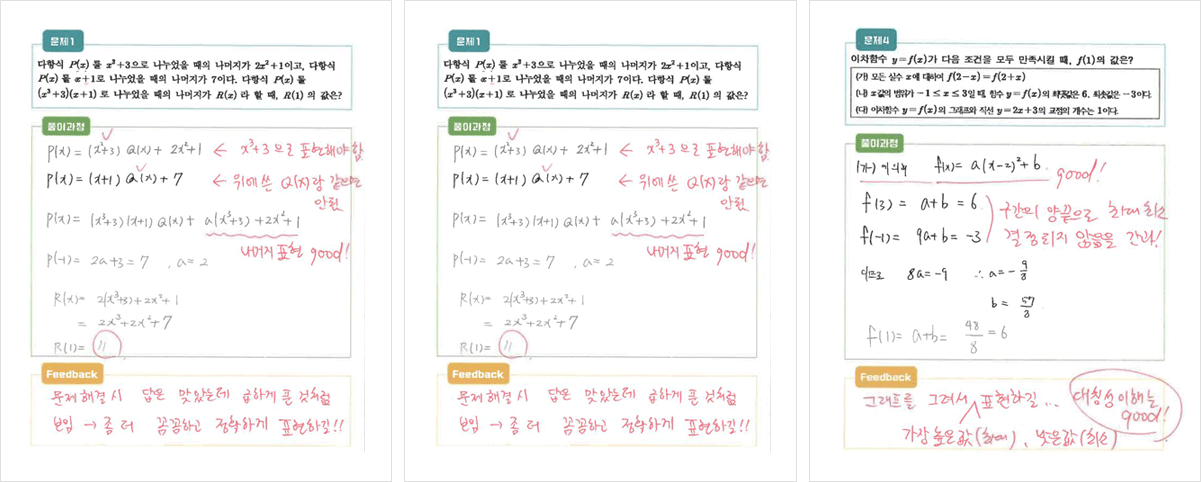 문제1
다항식 P(x) 를 x³+3으로 나누었을 때의 나머지가 2x²+1이고, 다항식
P(x) 를 x+1로 나누었을 때의 나머지가 7이다. 다항식 P(x) 를
(x³+3)(x+1) 로 나누었을 때의 나머지가 R(x) 라 할 때, R(1) 의 값은?
풀이과정
P(x) = (x²+3) Q(x) + 2x²+1 ← x³+3 으로 표현해야 함.
P(x) = (x+1) Q(x) + 7 ← 위에 쓴 Q(x)랑 같으면
안됨
P(x) = (x³+3)(x+1) Q(x) + a(x³+3) + 2x²+1
나머지 표현 good!
P(-1) = 2a+3 = 7 , a = 2
R(x) = 2(x³+3)+2x²+1
= 2x³+2x²+7
R(1) = 11
Feedback
문제 해결 시 답은 맞았는데 급하게 푼 것처럼
보임 → 좀 더 꼼꼼하고 정확하게 표현하길!!
문제1
다항식 P(x) 를 x³+3으로 나누었을 때의 나머지가 2x²+1이고, 다항식
P(x) 를 x+1로 나누었을 때의 나머지가 7이다. 다항식 P(x) 를
(x³+3)(x+1) 로 나누었을 때의 나머지가 R(x) 라 할 때, R(1) 의 값은?
풀이과정
P(x) = (x²+3) Q(x) + 2x²+1 ← x³+3 으로 표현해야 함.
P(x) = (x+1) Q(x) + 7 ← 위에 쓴 Q(x)랑 같으면
안됨
P(x) = (x³+3)(x+1) Q(x) + a(x³+3) + 2x²+1
나머지 표현 good!
P(-1) = 2a+3 = 7 , a = 2
R(x) = 2(x³+3)+2x²+1
= 2x³+2x²+7
R(1) = 11
Feedback
문제 해결 시 답은 맞았는데 급하게 푼 것처럼
보임 → 좀 더 꼼꼼하고 정확하게 표현하길!!
문제4
이차함수 y=f(x)가 다음 조건을 모두 만족시킬 때, f(1)의 값은?
(가) 모든 실수 x에 대하여 f(2-x)=f(2+x)
(나) x값의 범위가 -1≤x≤3일 때, 함수 y=f(x)의 최댓값은 6, 최솟값은 -3이다.
(다) 이차함수 y=f(x)의 그래프와 직선 y=2x+3의 교점의 개수는 1이다.
풀이과정
(가) 에 의해 f(x) = a(x-2)²+b good!
f(3) = a+b = 6
f(-1) = 9a+b = -3
구간의 양끝으로 최대 최소
결정되지 않음을 간과!
이므로 8a = -9 ∴ a = -9/8
b = 57/8
f(1) = a+b = 48/8 = 6
Feedback
그래프를 그려서 표현하길... 대칭성 이해는 good!
가장 높은 값(최대), 낮은 값(최소)